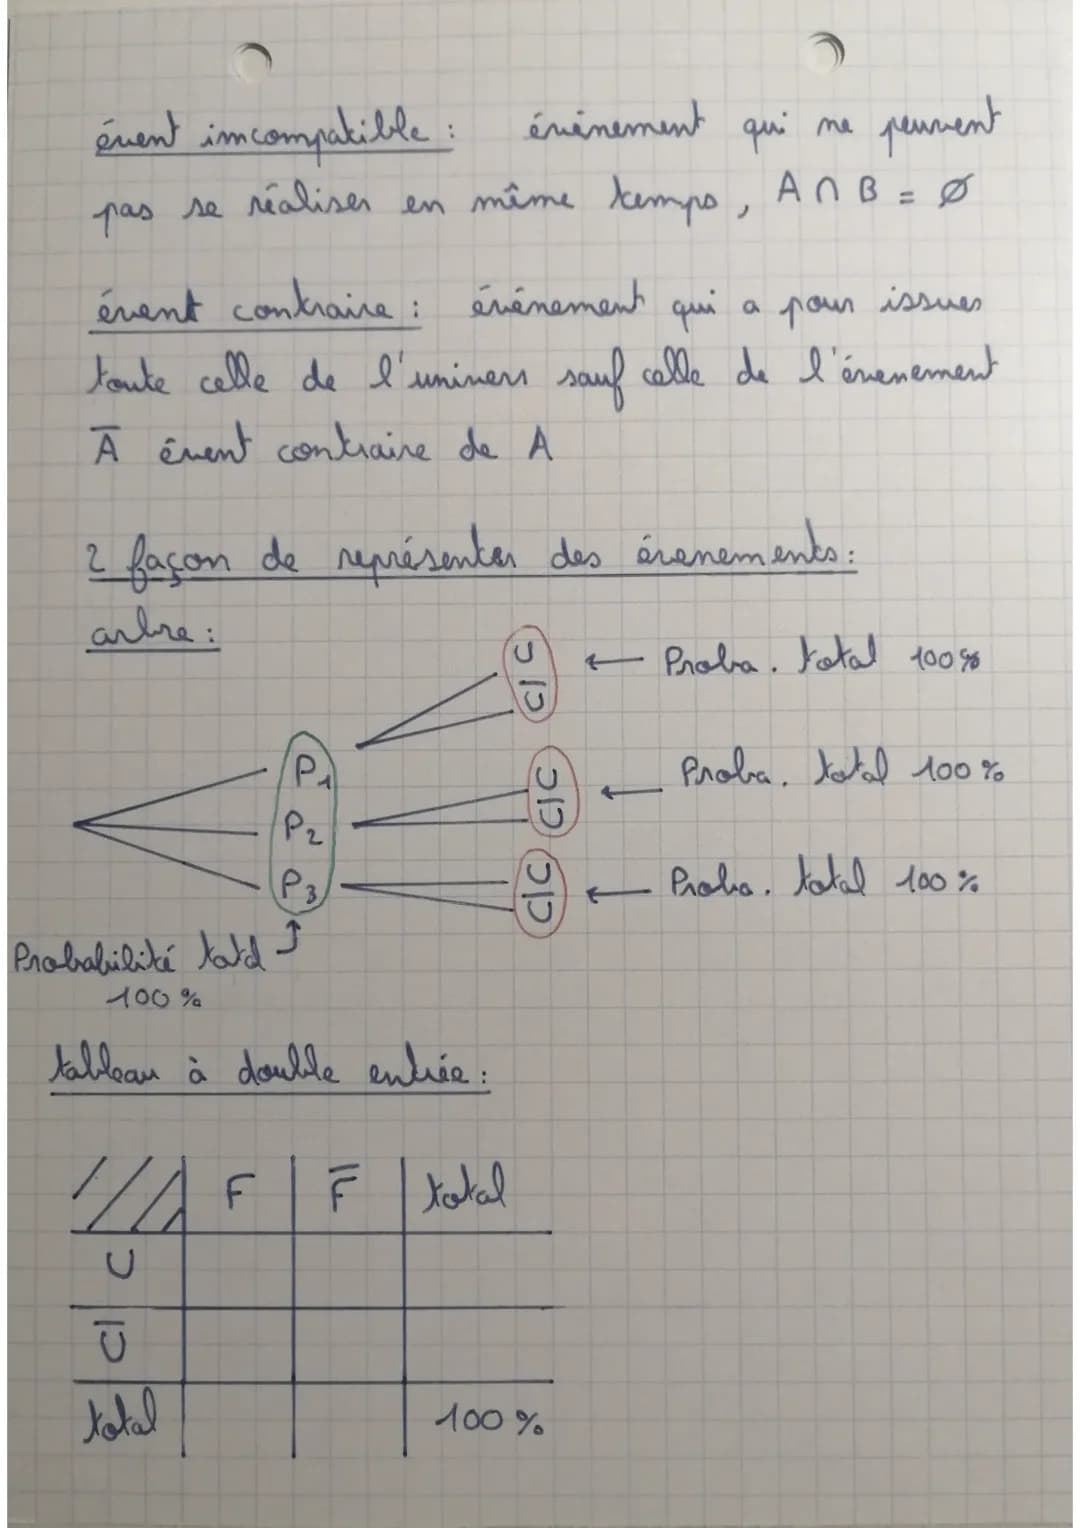 évent imcompatible : événement qui ne peuvent
pas se réaliser en même temps, A ∩ B = Ø
évent contraire : événement qui a pour issues
toute celle de l'univers sauf celle de l'évenement
A̅ évent contraire de A
2 façon de représenter des évenements :
arbre :
U
U̅
← Proba. total 100%
P₁
U
U̅
← Proba. total 100%
P₂
P₃
U
U̅
← Proba. total 100%
Probabilité total
100%
tableau à double entrée :
F F̅ total
U
U̅
total 100%